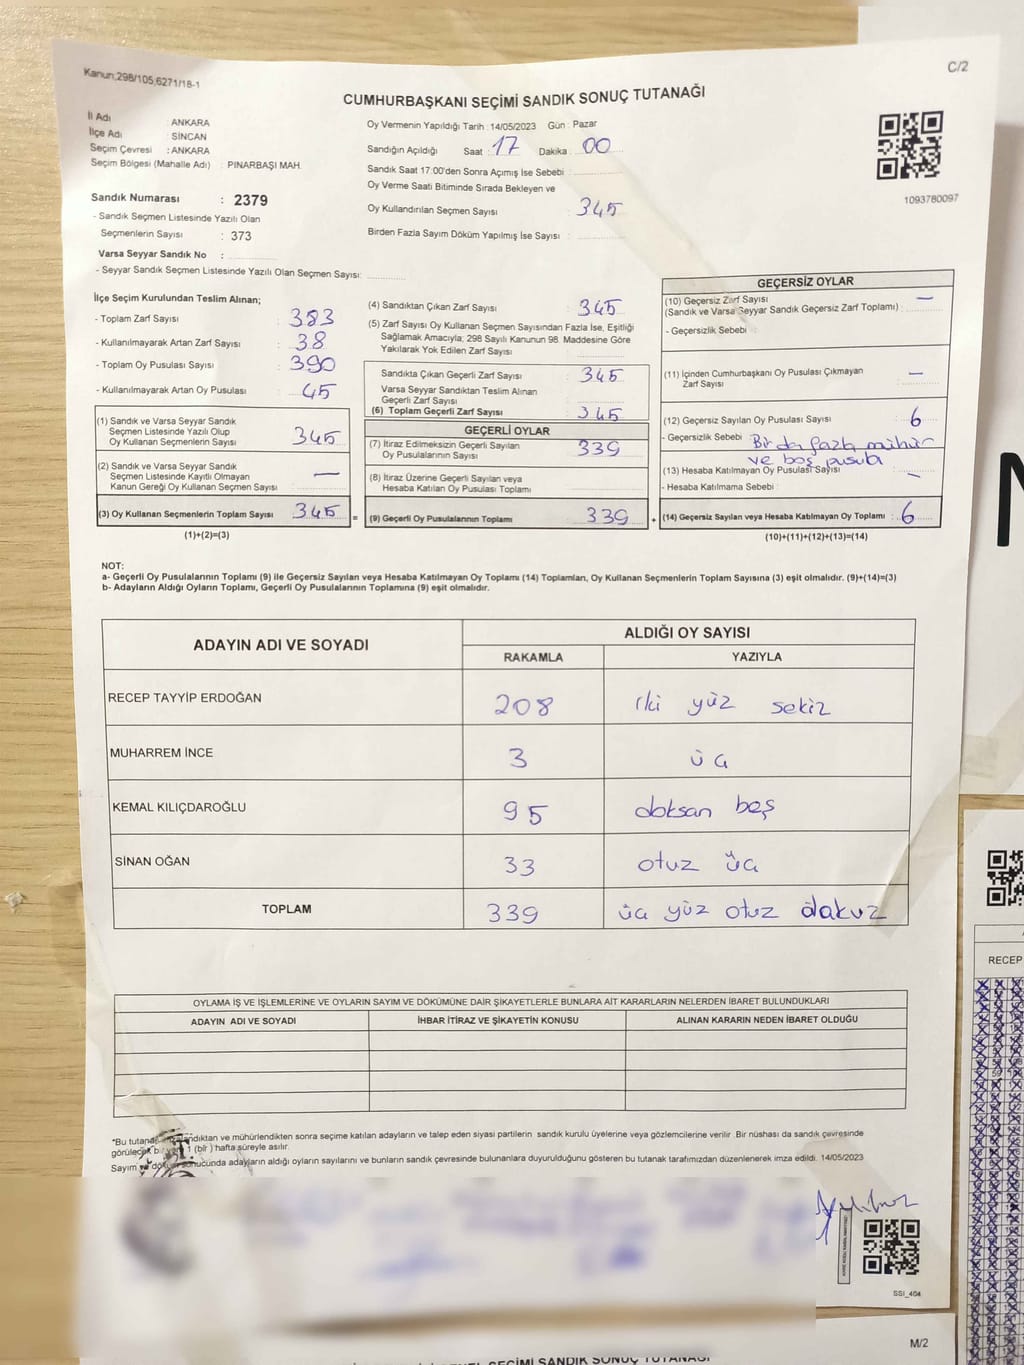 Kanun;298/105;6271/18-1
C/2
CUMHURBAŞKANI SEÇİMİ SANDIK SONUÇ TUTANAĞI
İl Adı : ANKARA
İlçe Adı : SİNCAN
Seçim Çevresi : ANKARA
Seçim Bölgesi (Mahalle Adı) : PINARBAŞI MAH.
Oy Vermenin Yapıldığı Tarih : 14/05/2023 Gün : Pazar
Sandığın Açıldığı Saat : 17 Dakika : 00
Sandık Saat 17:00'den Sonra Açımış İse Sebebi :
Oy Verme Saati Bitiminde Sırada Bekleyen ve
Oy Kullandırılan Seçmen Sayısı : 345
Birden Fazla Sayım Döküm Yapılmış İse Sayısı :
1093780097
Sandık Numarası : 2379
- Sandık Seçmen Listesinde Yazılı Olan
Seçmenlerin Sayısı : 373
Varsa Seyyar Sandık No :
- Seyyar Sandık Seçmen Listesinde Yazılı Olan Seçmen Sayısı:
İlçe Seçim Kurulundan Teslim Alınan;
- Toplam Zarf Sayısı : 383
- Kullanılmayarak Artan Zarf Sayısı : 38
- Toplam Oy Pusulası Sayısı : 390
- Kullanılmayarak Artan Oy Pusulası : 45
(1) Sandık ve Varsa Seyyar Sandık
Seçmen Listesinde Yazılı Olup
Oy Kullanan Seçmenlerin Sayısı : 345
(2) Sandık ve Varsa Seyyar Sandık
Seçmen Listesinde Kayıtlı Olmayan
Kanun Gereği Oy Kullanan Seçmen Sayısı : —
(3) Oy Kullanan Seçmenlerin Toplam Sayısı : 345 =
(1)+(2)=(3)
(4) Sandıktan Çıkan Zarf Sayısı : 345
(5) Zarf Sayısı Oy Kullanan Seçmen Sayısından Fazla İse, Eşitliği
Sağlamak Amacıyla; 298 Sayılı Kanunun 98. Maddesine Göre
Yakılarak Yok Edilen Zarf Sayısı :
Sandıkta Çıkan Geçerli Zarf Sayısı : 345
Varsa Seyyar Sandıktan Teslim Alınan
Geçerli Zarf Sayısı :
(6) Toplam Geçerli Zarf Sayısı : 345
GEÇERLİ OYLAR
(7) İtiraz Edilmeksizin Geçerli Sayılan
Oy Pusulalarının Sayısı : 339
(8) İtiraz Üzerine Geçerli Sayılan veya
Hesaba Katılan Oy Pusulası Toplamı :
(9) Geçerli Oy Pusulalarının Toplamı : 339 +
GEÇERSİZ OYLAR
(10) Geçersiz Zarf Sayısı : —
(Sandık ve Varsa Seyyar Sandık Geçersiz Zarf Toplamı) :
- Geçersizlik Sebebi :
(11) İçinden Cumhurbaşkanı Oy Pusulası Çıkmayan
Zarf Sayısı : —
(12) Geçersiz Sayılan Oy Pusulası Sayısı : 6
- Geçersizlik Sebebi : Bir da fazla mühür
ve boş pusula
(13) Hesaba Katılmayan Oy Pusulası Sayısı : —
- Hesaba Katılmama Sebebi :
(14) Geçersiz Sayılan veya Hesaba Katılmayan Oy Toplamı : 6
(10)+(11)+(12)+(13)=(14)
NOT:
a- Geçerli Oy Pusulalarının Toplamı (9) ile Geçersiz Sayılan veya Hesaba Katılmayan Oy Toplamı (14) Toplamları, Oy Kullanan Seçmenlerin Toplam Sayısına (3) eşit olmalıdır. (9)+(14)=(3)
b- Adayların Aldığı Oyların Toplamı, Geçerli Oy Pusulalarının Toplamına (9) eşit olmalıdır.
ADAYIN ADI VE SOYADI ALDIĞI OY SAYISI
RAKAMLA YAZIYLA
RECEP TAYYİP ERDOĞAN 208 iki yüz sekiz
MUHARREM İNCE 3 üç
KEMAL KILIÇDAROĞLU 95 doksan beş
SİNAN OĞAN 33 otuz üç
TOPLAM 339 üç yüz otuz dokuz
OYLAMA İŞ VE İŞLEMLERİNE VE OYLARIN SAYIM VE DÖKÜMÜNE DAİR ŞİKAYETLERLE BUNLARA AİT KARARLARIN NELERDEN İBARET BULUNDUKLARI
ADAYIN ADI VE SOYADI İHBAR İTİRAZ VE ŞİKAYETİN KONUSU ALINAN KARARIN NEDEN İBARET OLDUĞU
*Bu tutanak imzalandıktan ve mühürlendikten sonra seçime katılan adayların ve talep eden siyasi partilerin sandık kurulu üyelerine veya gözlemcilerine verilir. Bir nüshası da sandık çevresinde
görülecek bir yere 1 (bir) hafta süreyle asılır.
Sayım ve döküm sonucunda adayların aldığı oyların sayılarını ve bunların sandık çevresinde bulunanlara duyurulduğunu gösteren bu tutanak tarafımızdan düzenlenerek imza edildi. 14/05/2023
SSI_404
M/2
SEÇİMİ SANDIK SONUÇ TUTANAĞI
RECEP